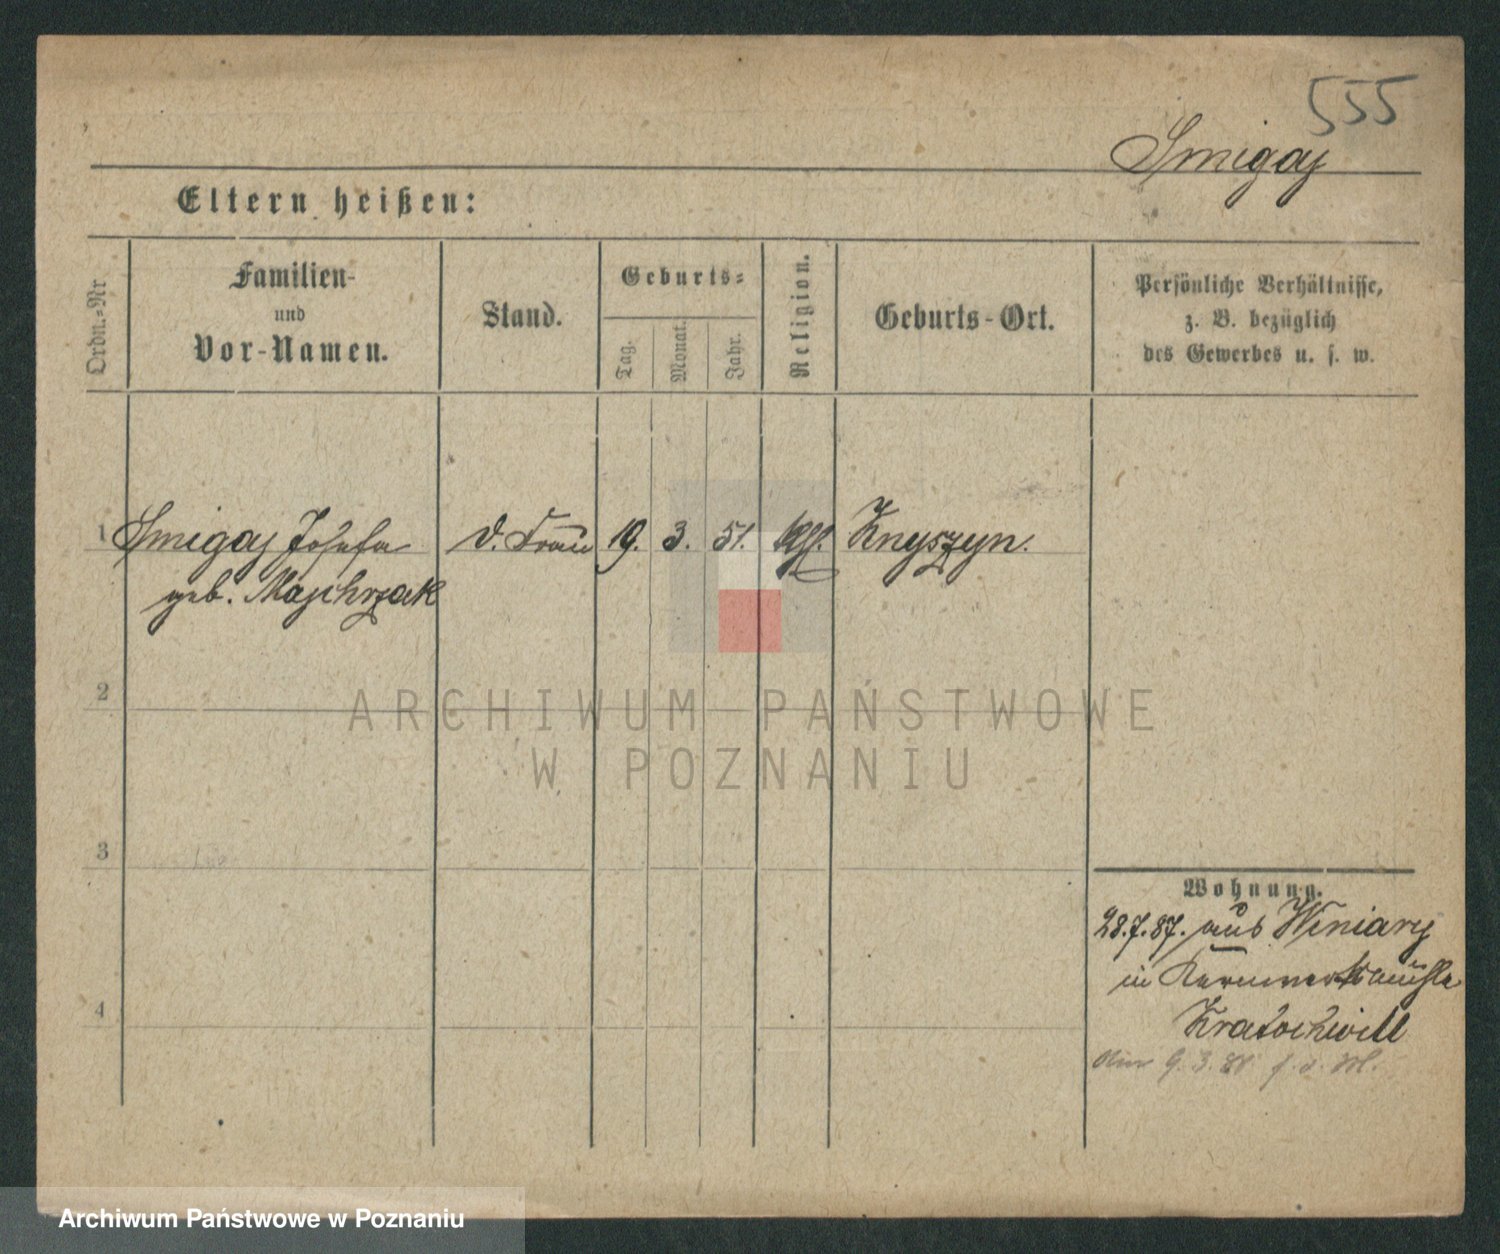 555
Smigaj
Eltern heißen:
Ordn.-Nr
Familien-
und
Vor-Namen.
Stand.
Geburts-
Tag.
Monat.
Jahr.
Religion.
Geburts-Ort.
Persönliche Verhältnisse,
z. B. bezüglich
des Gewerbes u. s. w.
1 Smigaj Josefa d. Frau 19. 3. 51. kath. Knyszyn.
geb. Majchrzak
2
ARCHIWUM PAŃSTWOWE
W POZNANIU
3
Wohnung.
28.7.87. aus Winiary
in
Kratochwill
4
9. 3.
Archiwum Państwowe w Poznaniu